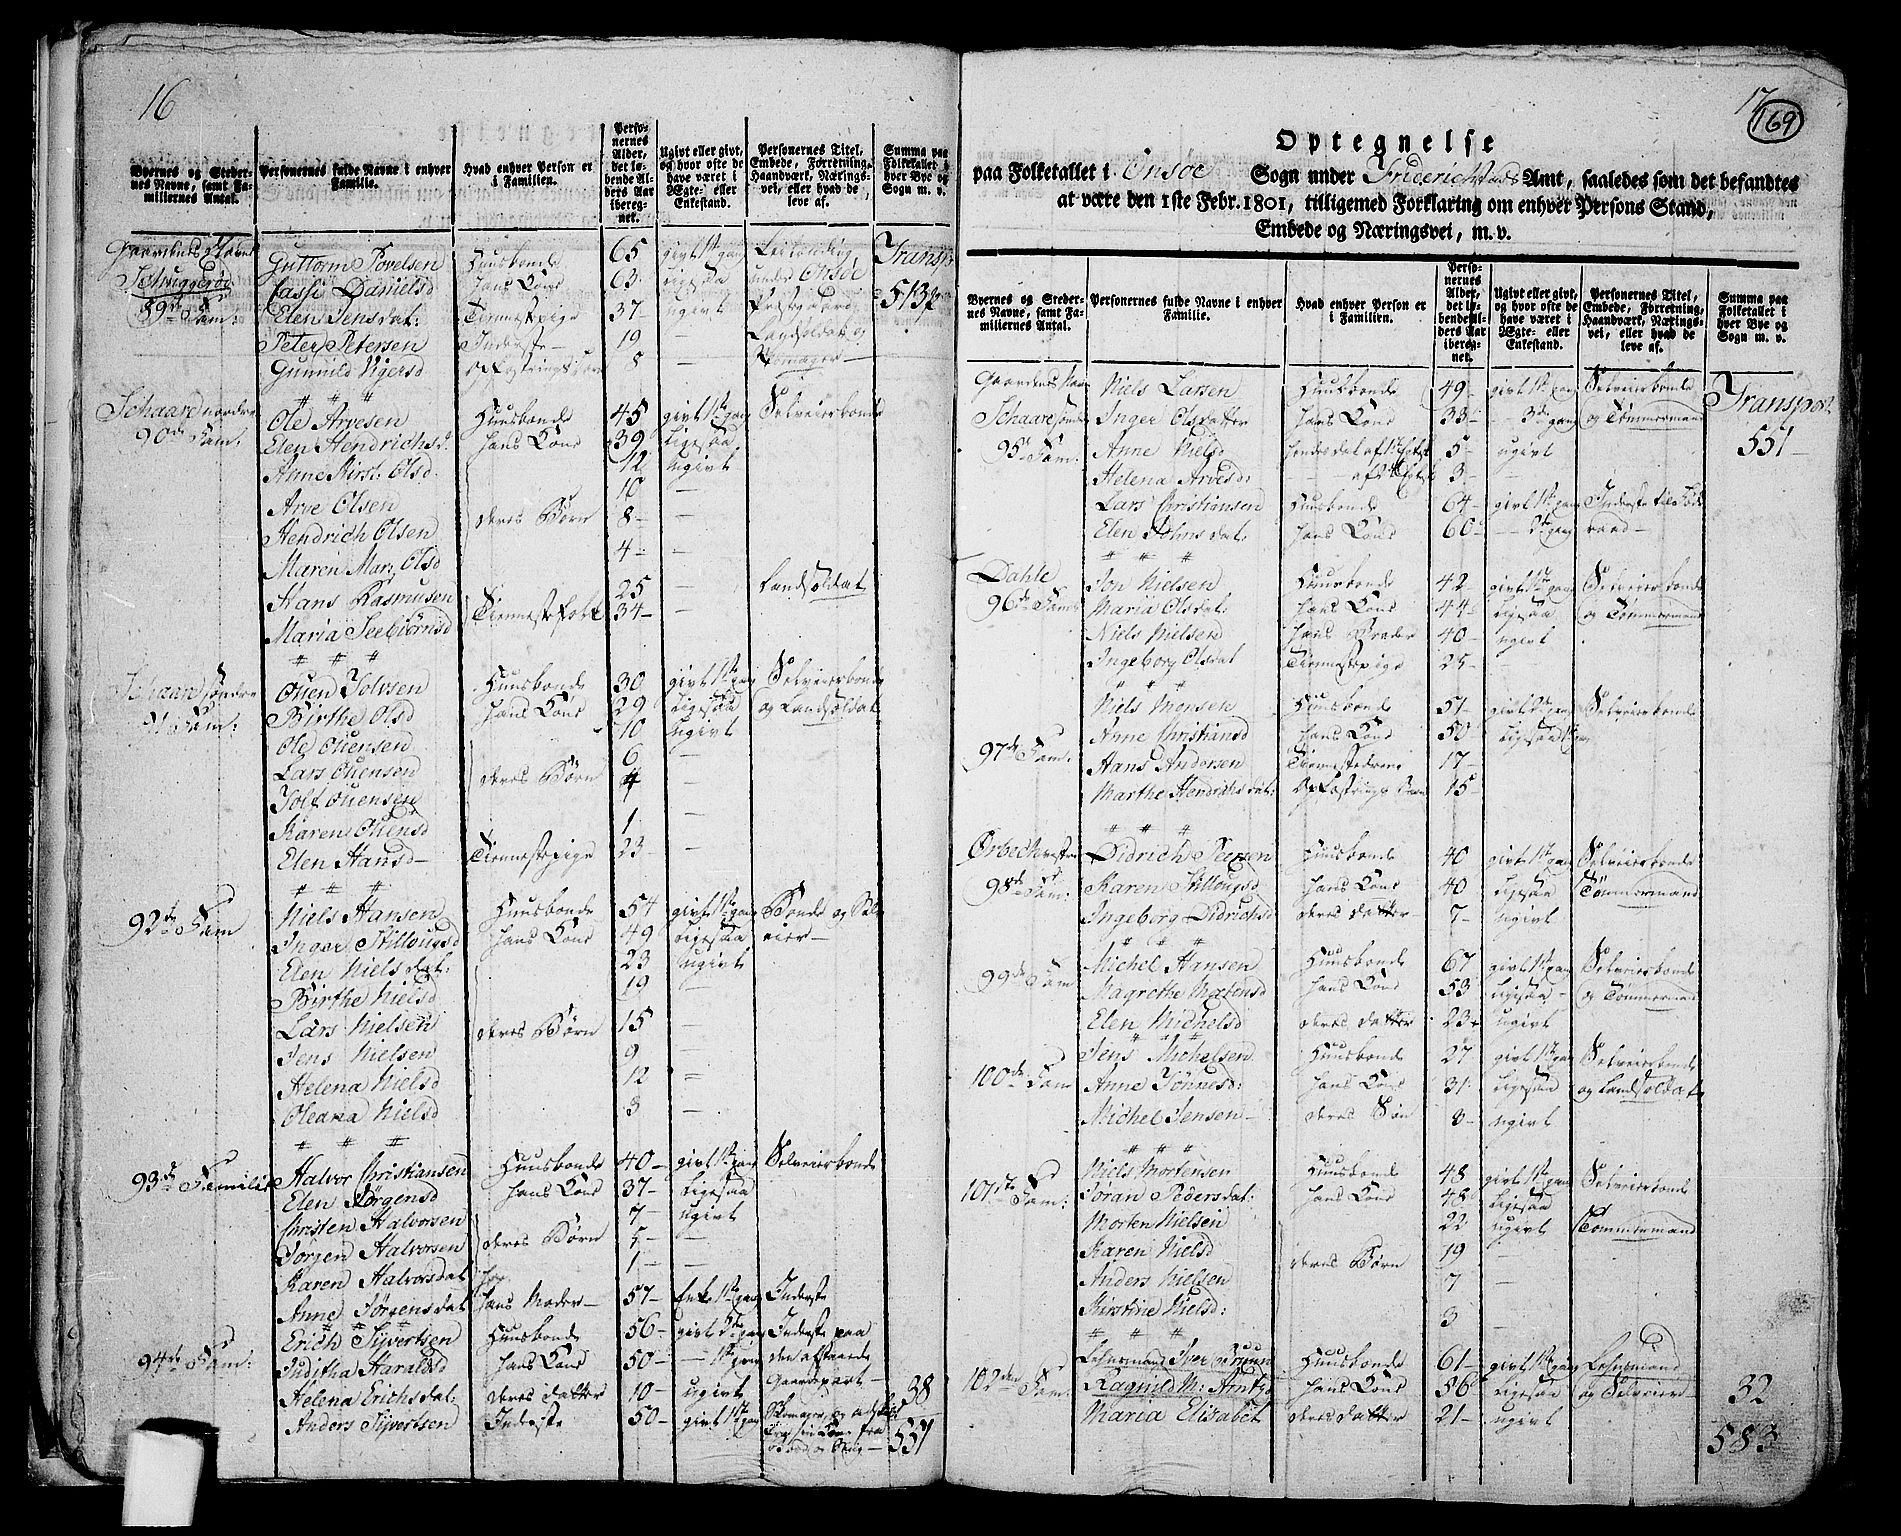 16
Byernes og Stedernes Navne, samt Familiernes Antal.
Personernes fulde Navne i enhver Familie.
Hvad enhver Person er i Familien.
Personernes Alder, det løbende Alders Aar iberegnet.
Ugivt eller givt, og hvor ofte de have været i Ægte- eller Enkestand.
Personernes Titel, Embede, Forretning, Haandværk, Næringsvei, eller hvad de leve af.
Summa paa Folketallet i hver Bye og Sogn m. v.
Guttorm Povelsen Huusbonde 65 givt 1ste gang
Danielsd hans Kone 63 Ligesaa under Onsøe 513
89de Fam: Elen Jensdat: Tienestepige 37 ugivt
Peter Petersen Inderst 19 — Landsoldat og
Gunnild 8 — Skomager
Schaare nordre Ole Arvesen Huusbonde 45 givt 1ste gang Selveierbonde
90de Fam: Elen Hendrichsd: hans Kone 39 Ligesaa
Anne Kirst: Olsd: 12 ugivt
Arve Olsen 10 —
Hendrich Olsen deres Børn 8 —
Maren Mar: Olsd 4 —
Hans Rasmusen 25 — Landsoldat
Maria Seebiørnsd Tienestefolk 34 —
Schaare søndre Ouen Jolvsen Huusbonde 30 givt 1ste gang Selveierbonde
91 Fam: Birthe Olsd hans Kone 29 Ligesaa og Landsoldat
Ole Ouensen 10 ugivt
Lars Ouensen 6 —
Jolf Ouensen deres Børn 4 —
Karen Ouensd 1 —
Elen Hansd Tienestepige 23 —
92de Fam Niels Hansen Huusbonde 54 givt 1ste gang Bonde og Selveier
Inger Stillougsd hans Kone 49 Ligesaa
Elen Nielsdat: 23 ugivt
Birthe Nielsd 19 —
Lars Nielsen deres Børn 15 —
Jens Nielsen 9 —
Helena Nielsd 12 —
Oleana Nielsd 3 —
93de Familie Halvor Christiansen Huusbonde 40 givt 1ste gang Selveierbonde
Elen Jørgensd hans Kone 37 Ligesaa
Christen Halvorsen 7 ugivt
Jørgen Halvorsen deres Børn 5 —
Karen Halvorsdat 1 —
Anne Jørgensdat hans Moder 57 Enke 1ste gang Inderste
94de Fam: Erich Sijvertsen Huusbonde 56 givt Inderste paa
Juditha Haraldsd hans Kone 50 — 1ste gang den afstaaede
Helena Erichsdat: deres datter 10 ugivt Gaardepart 38
Anders Sijvertsen Inderste 50 givt 1ste gang Skomager, og 551
17
169
Optegnelse
paa Folketallet i Onsøe Sogn under Friderichstads Amt, saaledes som det befandtes
at være den 1ste Febr. 1801, tilligemed Forklaring om enhver Persons Stand,
Embede og Næringsvei, m. v.
Byernes og Stedernes Navne, samt Familiernes Antal.
Personernes fulde Navne i enhver Familie.
Hvad enhver Person er i Familien.
Personernes Alder, det løbende Alders Aar iberegnet.
Ugivt eller givt, og hvor ofte de have været i Ægte- eller Enkestand.
Personernes Titel, Embede, Forretning, Haandværk, Næringsvei, eller hvad de leve af.
Summa paa Folketallet i hver Bye og Sogn m. v.
Niels Larsen Huusbonde 49 givt 1ste gang Selveierbonde Transport
Schaare søndre Inger Olsdatter hans Kone 33 — 3de gang og Tømmermand 551
95 Fam: Anne Nielsd 5 ugivt
Helena Arvesd: 3 —
Lars Christiansen Huusbonde 64 givt 1ste gang Inderste
Elen Johnsdat: hans Kone 60 — 2de gang
Dahle Jon Nielsen Huusbonde 42 givt 1ste gang Selveierbonde
96de Fam: Maria Olsdat: hans Kone 44 Ligesaa og Tømmermand
Niels Nielsen hans Broder 40 ugivt
Ingeborg Olsdat Tienestepige 25 —
Niels Monsen Huusbonde 51 givt Selveierbonde
Anne Christiansd hans Kone 50 Ligesaa
97de Fam: Hans Andersen Tienestedreng 17 —
Marthe Hendrichsdat: 15 —
Ørbech vestre Didrich Huusbonde 40 givt 1ste gang Selveierbonde
98de Fam: Karen Stillougsd hans Kone 40 Ligesaa Tømmermand
Ingeborg Didrichsd deres datter 7 ugivt
99de Fam Michel Hansen Huusbonde 67 givt 1ste gang Selveierbonde
Magrethe hans Kone 53 Ligesaa og Tømmermand
Elen Michelsd deres datter 23 ugivt
Jens Michelsen Huusbonde 27 givt 1ste gang Selveierbonde
100de Fam Anne Tønnesd: hans Kone 31 Ligesaa og Landsoldat
Michel Jensen deres Søn 8 ugivt
Niels Mortensen Huusbonde 48 givt 1ste gang Selveierbonde
101ste Fam: Joran Pedersdat: hans Kone 48 Ligesaa
Morten Nielsen 22 ugivt Tømmermand
Karen Nielsd 19 —
Anders Nielsen deres Børn 7 —
Kirstine Nielsd: 3 —
Lehnsmand Iver Huusbonde 61 givt 1ste gang Lehnsmand
102den Fam: Ragnild M: hans Kone 56 Ligesaa og Selveier 32
Maria Elisabet deres datter 21 ugivt
583